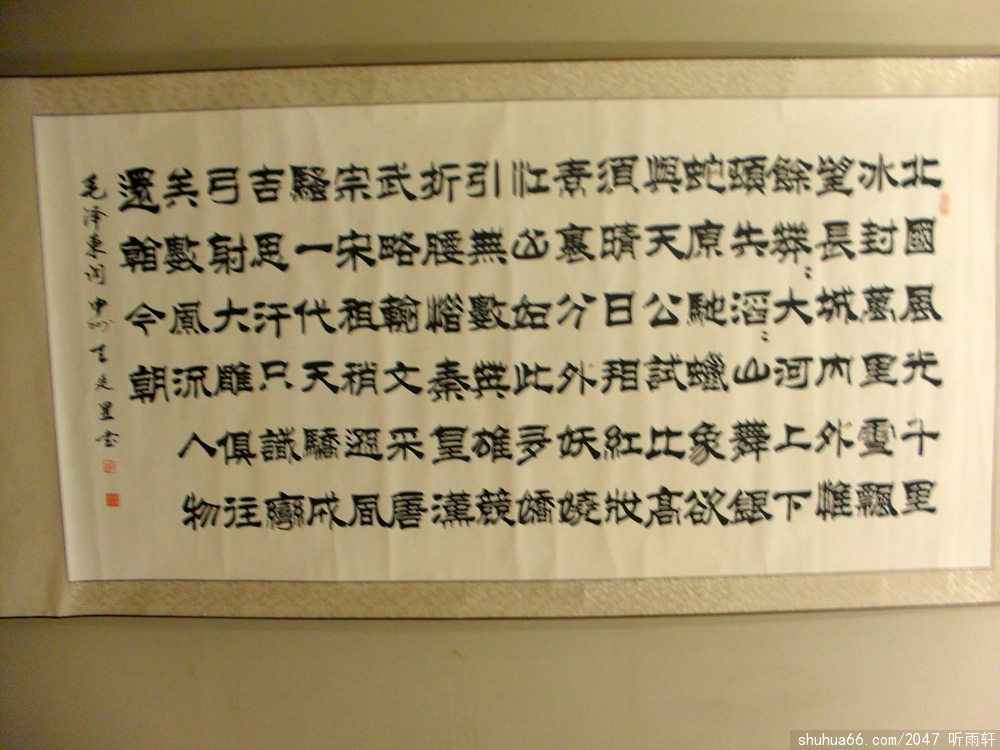 北國風光千里
冰封萬里雪飄
望長城內外惟
餘莽〻大河上下
頓失滔〻山舞銀
蛇原馳蠟象欲
與天公試比高
須晴日看紅妝
素裹分外妖嬈
江山如此多嬌
引無數英雄競
折腰惜秦皇漢
武略輸文采唐
宗宋祖稍遜風
騷一代天驕成
吉思汗只識彎
弓射大雕俱往
矣數風流人物
還看今朝
毛泽東词 中州王廷書
shuhua66.com/2047 听雨轩